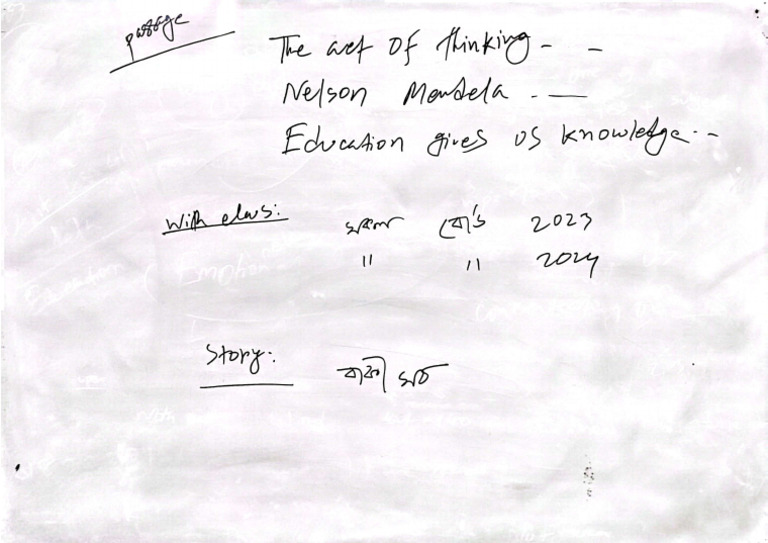 passage
The art of thinking - -
Nelson Mandela . —
Education gives us knowledge.. -
With clues: সকল বোর্ড 2023
" " 2024
Story: বাকী সব